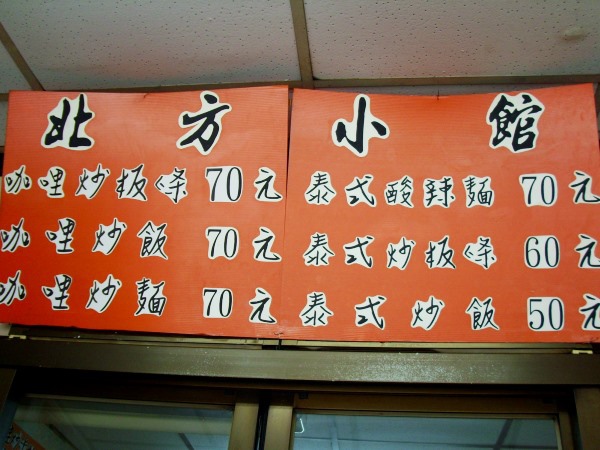 北方小館
咖哩炒板條 70元
咖哩炒飯 70元
咖哩炒麵 70元
泰式酸辣麵 70元
泰式炒板條 60元
泰式炒飯 50元